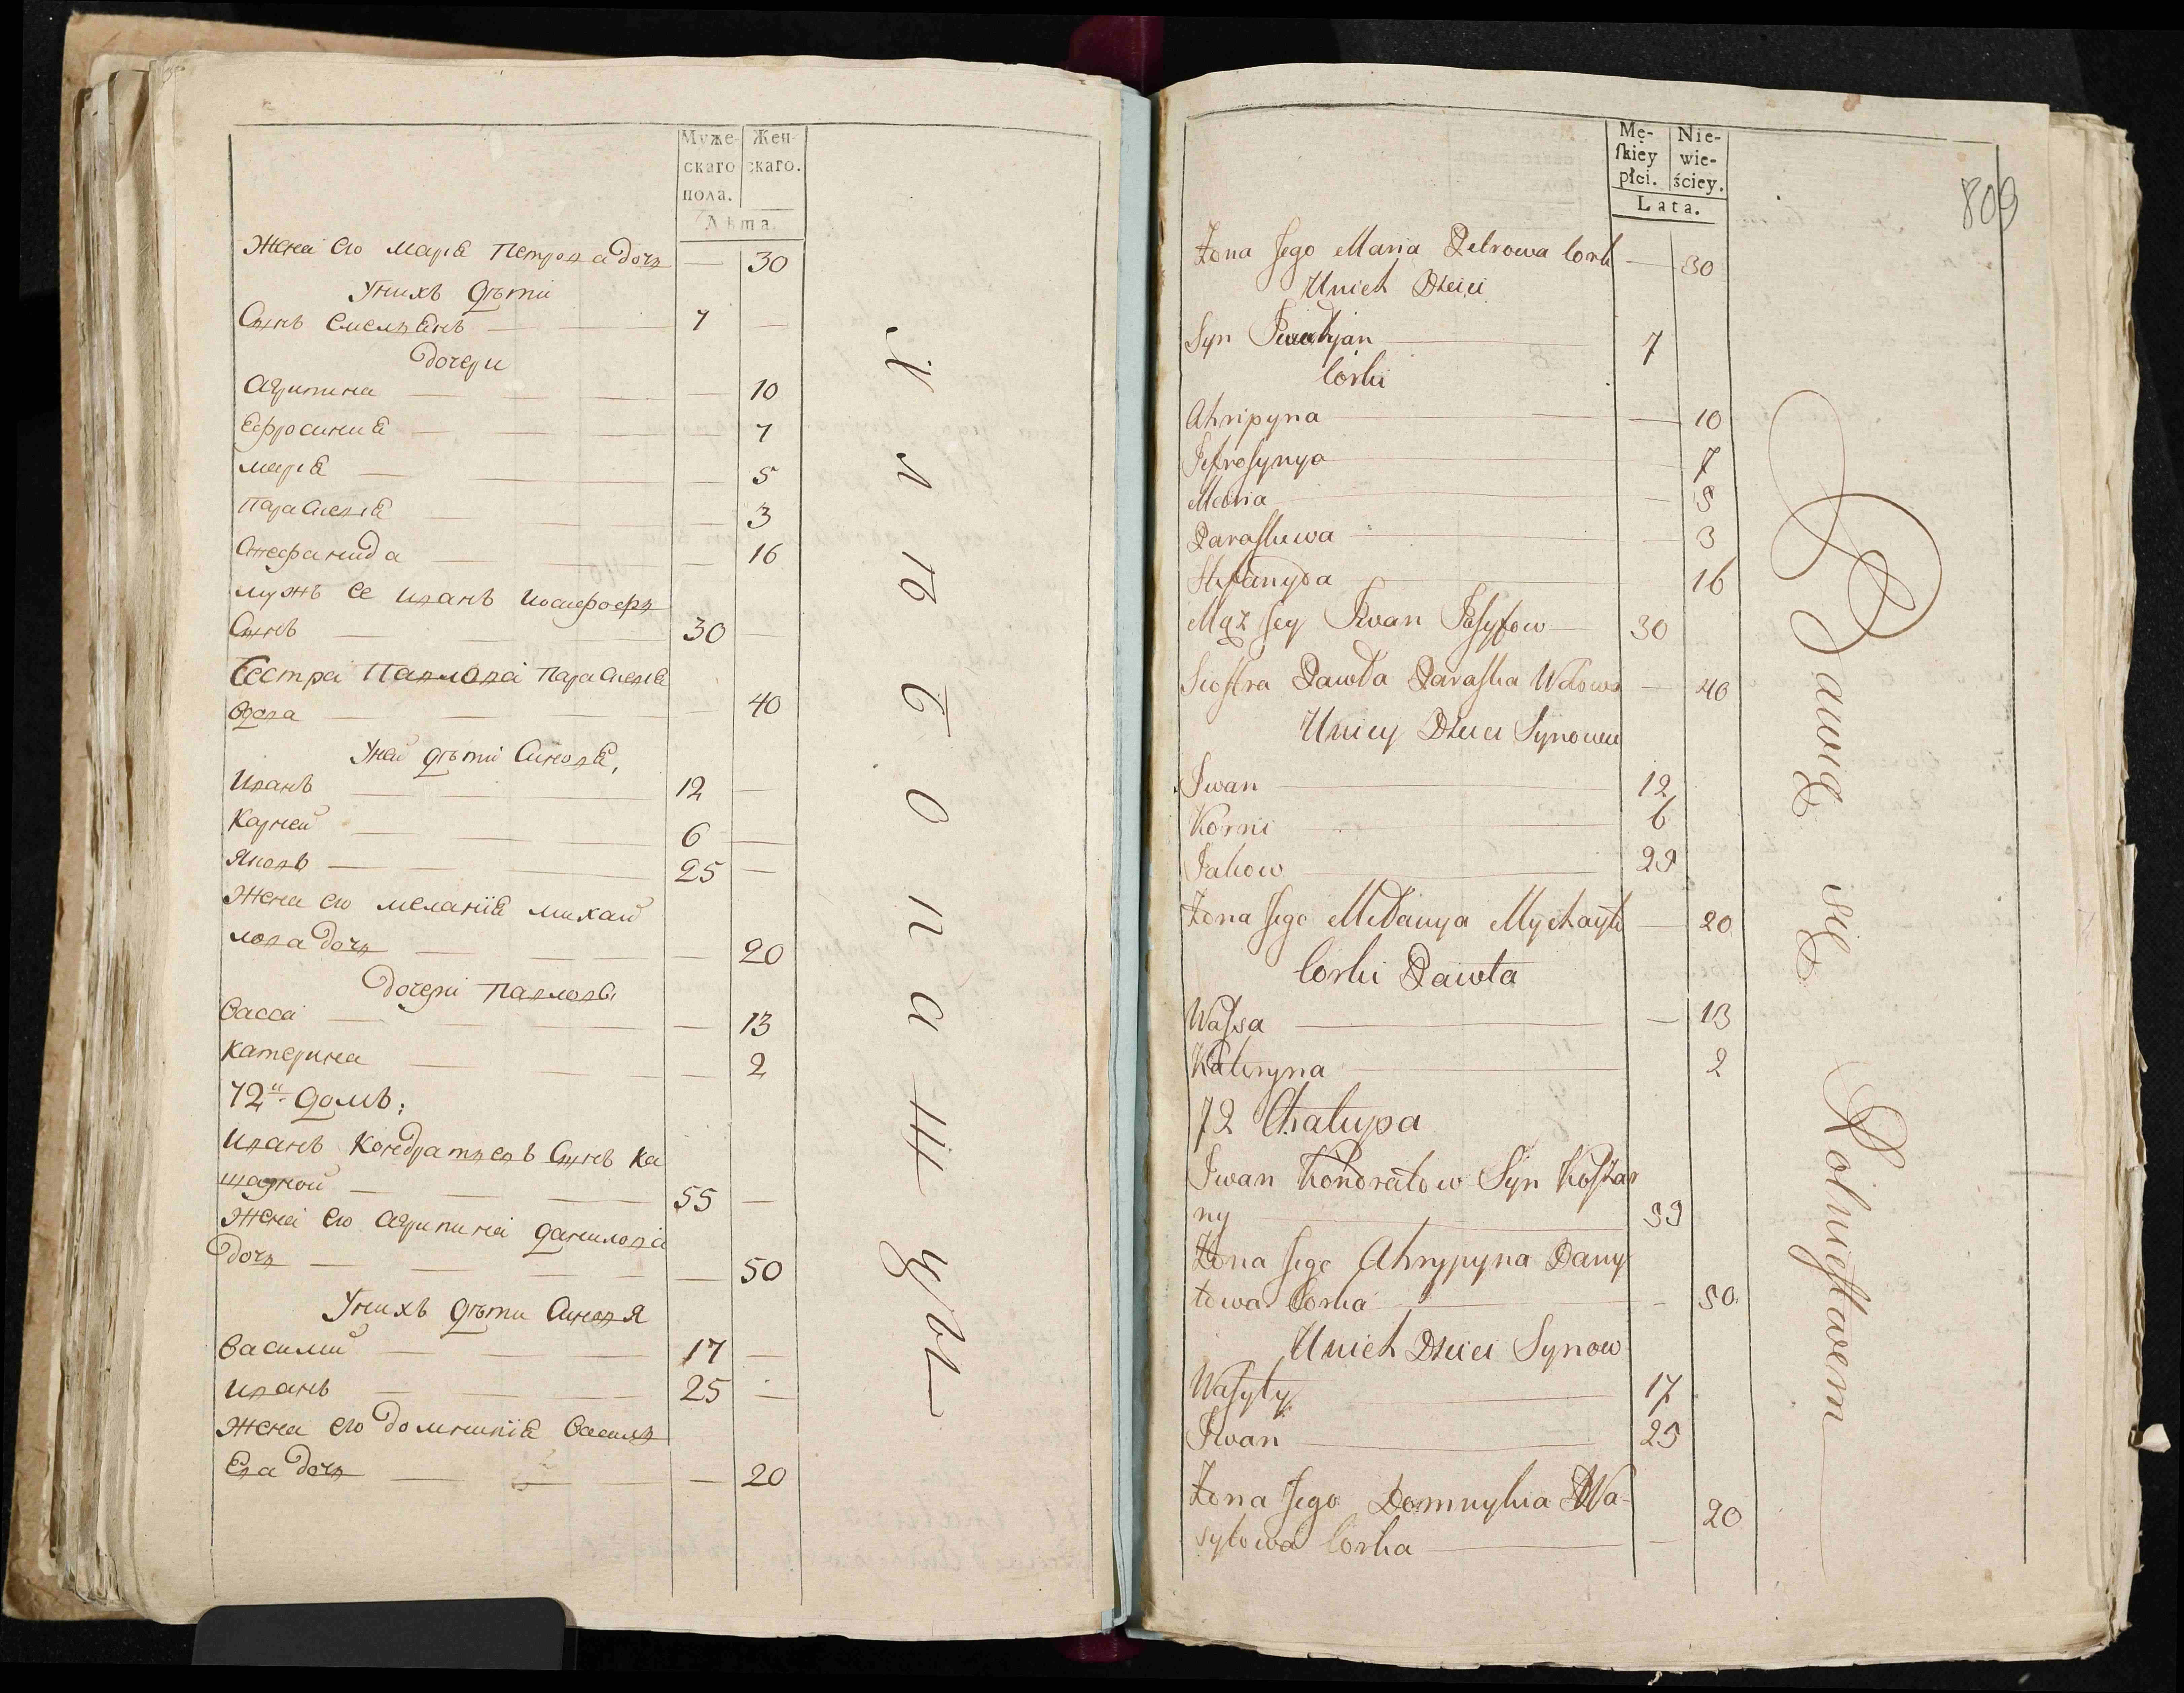 Муже-
скаго
пола.
Жен-
скаго.
Лѣта.
Жена его Марія Петрова дочь — 30
У нихъ дѣти
Сынъ Емельянъ — 7 —
дочери
Агрипина — 10
Ефросинія — 7
Марія — 5
Параскевія — 3
Стефанида — 16
мужъ ее Иванъ Иосифовъ
Сынъ — 30 —
Сестра Павлова Параскевія
вдова — 40
У ней дѣти Синовя,
Иванъ — 12 —
Карней — 6 —
Яковъ — 25 —
Жена его Меланія Михай
лова дочь — 20
Дочери Павловы
Васса — 13
Катерина — 2
72й домъ:
Иванъ Кондратьевъ Сынъ Ка
шарной — 55 —
Жена его Агрипина Данилова
дочь — 50
У нихъ дѣти Синовя
Василий — 17 —
Иванъ — 25 —
Жена его Домникія Василь
Ева дочь — 20
Mę-
ſkiey
płci.
Nie-
wie-
ściey.
Lata.
809
Żona Jego Maria Petrowa Cork — 30
Unich Dzieci
Syn — 7
Corki
Ahripyna — 10
Jefrosynya — 7
Maria — 5
Paraskewa — 3
Stefanyda — 16
Mąż Jey Iwan Josyfow — 30
Siostra Pawła Paraska Wdowa — 40
Uniey Dzieci Synowie
Iwan — 12
Korni — 6
Jakow — 25
Żona Jego Mełanya Mychayło — 20
Corki Pawła
Wassa — 13
Kateryna — 2
72 Chałupa
Iwan Kondratow Syn Koszar
ny — 55
Żona Jego Ahrypyna Dany
łowa Corka — 50
Unich Dzieci Synow
Wasyły — 17
Iwan — 25
Żona Jego Domnykia Wa-
syłowa Corka — 20
Bawią się Rolnictwem